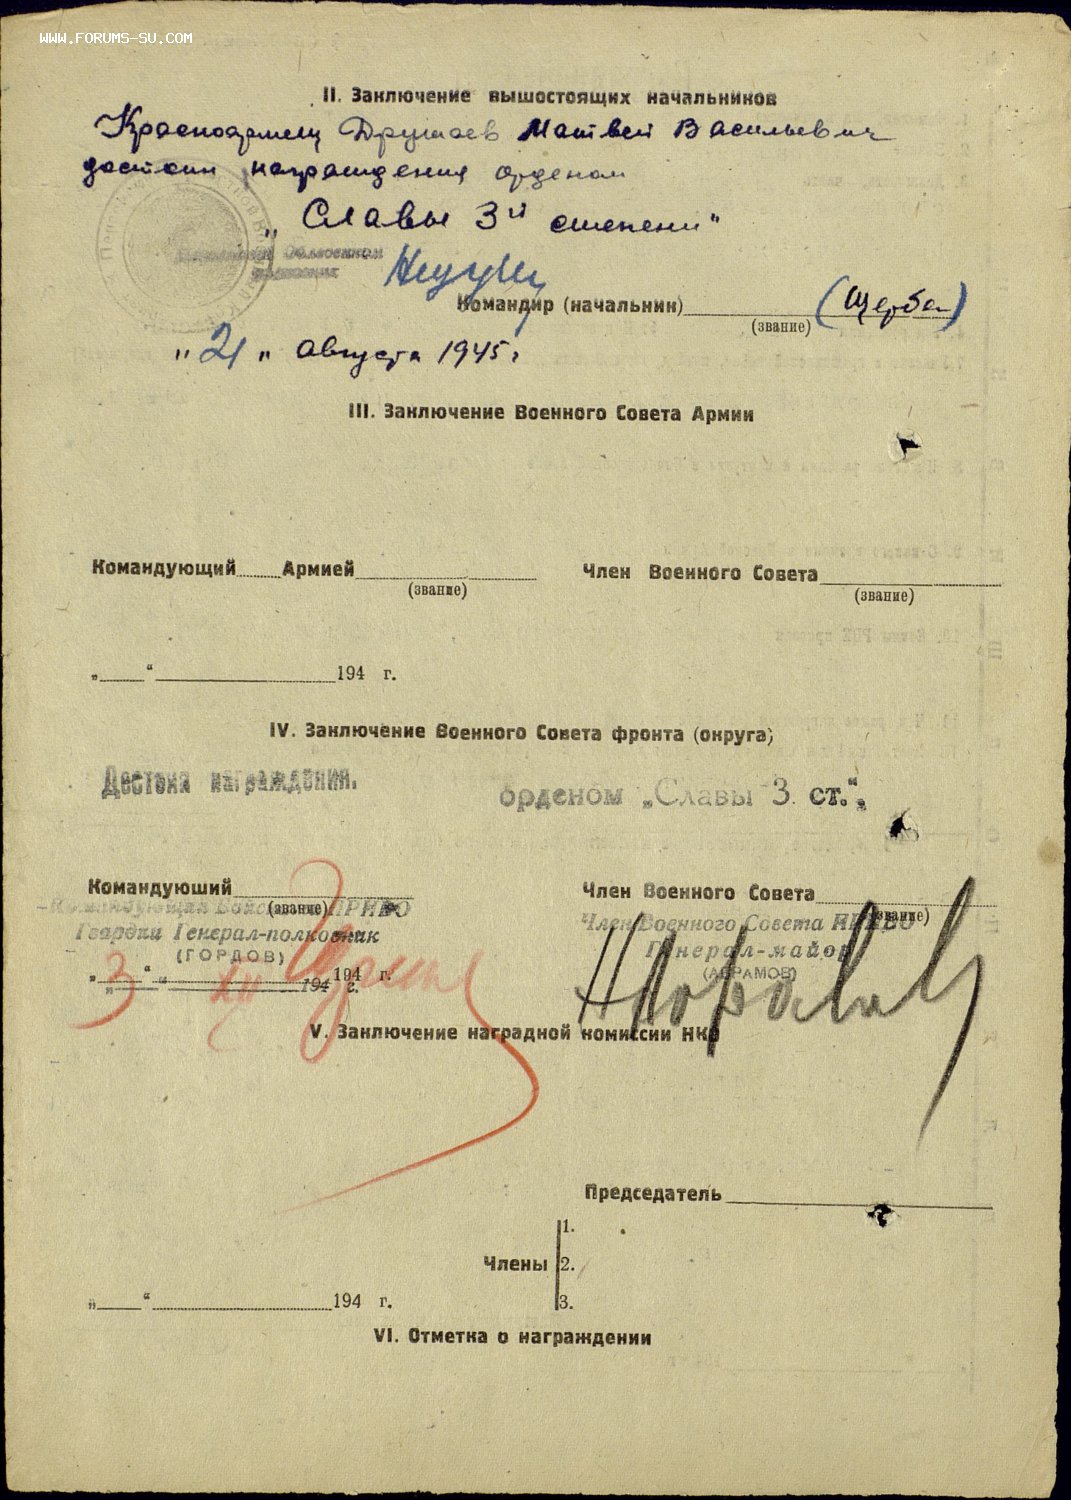 WWW.FORUMS-SU.COM
II. Заключение вышостоящих начальников
Красноармеец Матвей Васильевич
достоин награждения орденом
„Славы 3й степени"
Командир (начальник) (Щерба)
(звание)
"21" августа 1945 г.
III. Заключение Военного Совета Армии
Командующий Армией Член Военного Совета
(звание) (звание)
„ “ 194 г.
IV. Заключение Военного Совета фронта (округа)
Достоин награждения. орденом „Славы 3 ст.“.
Командующий Член Военного Совета
(звание) (звание)
Командующий ПРИВО Член Военного Совета ПРИВО
Гвардии Генерал-полковник Генерал-майор
(ГОРДОВ) (АБРАМОВ)
„3“ XII 194 г.
„ “ 194 г.
V. Заключение наградной комиссии НКО
Председатель
1.
Члены 2.
3.
„ “ 194 г.
VI. Отметка о награждении